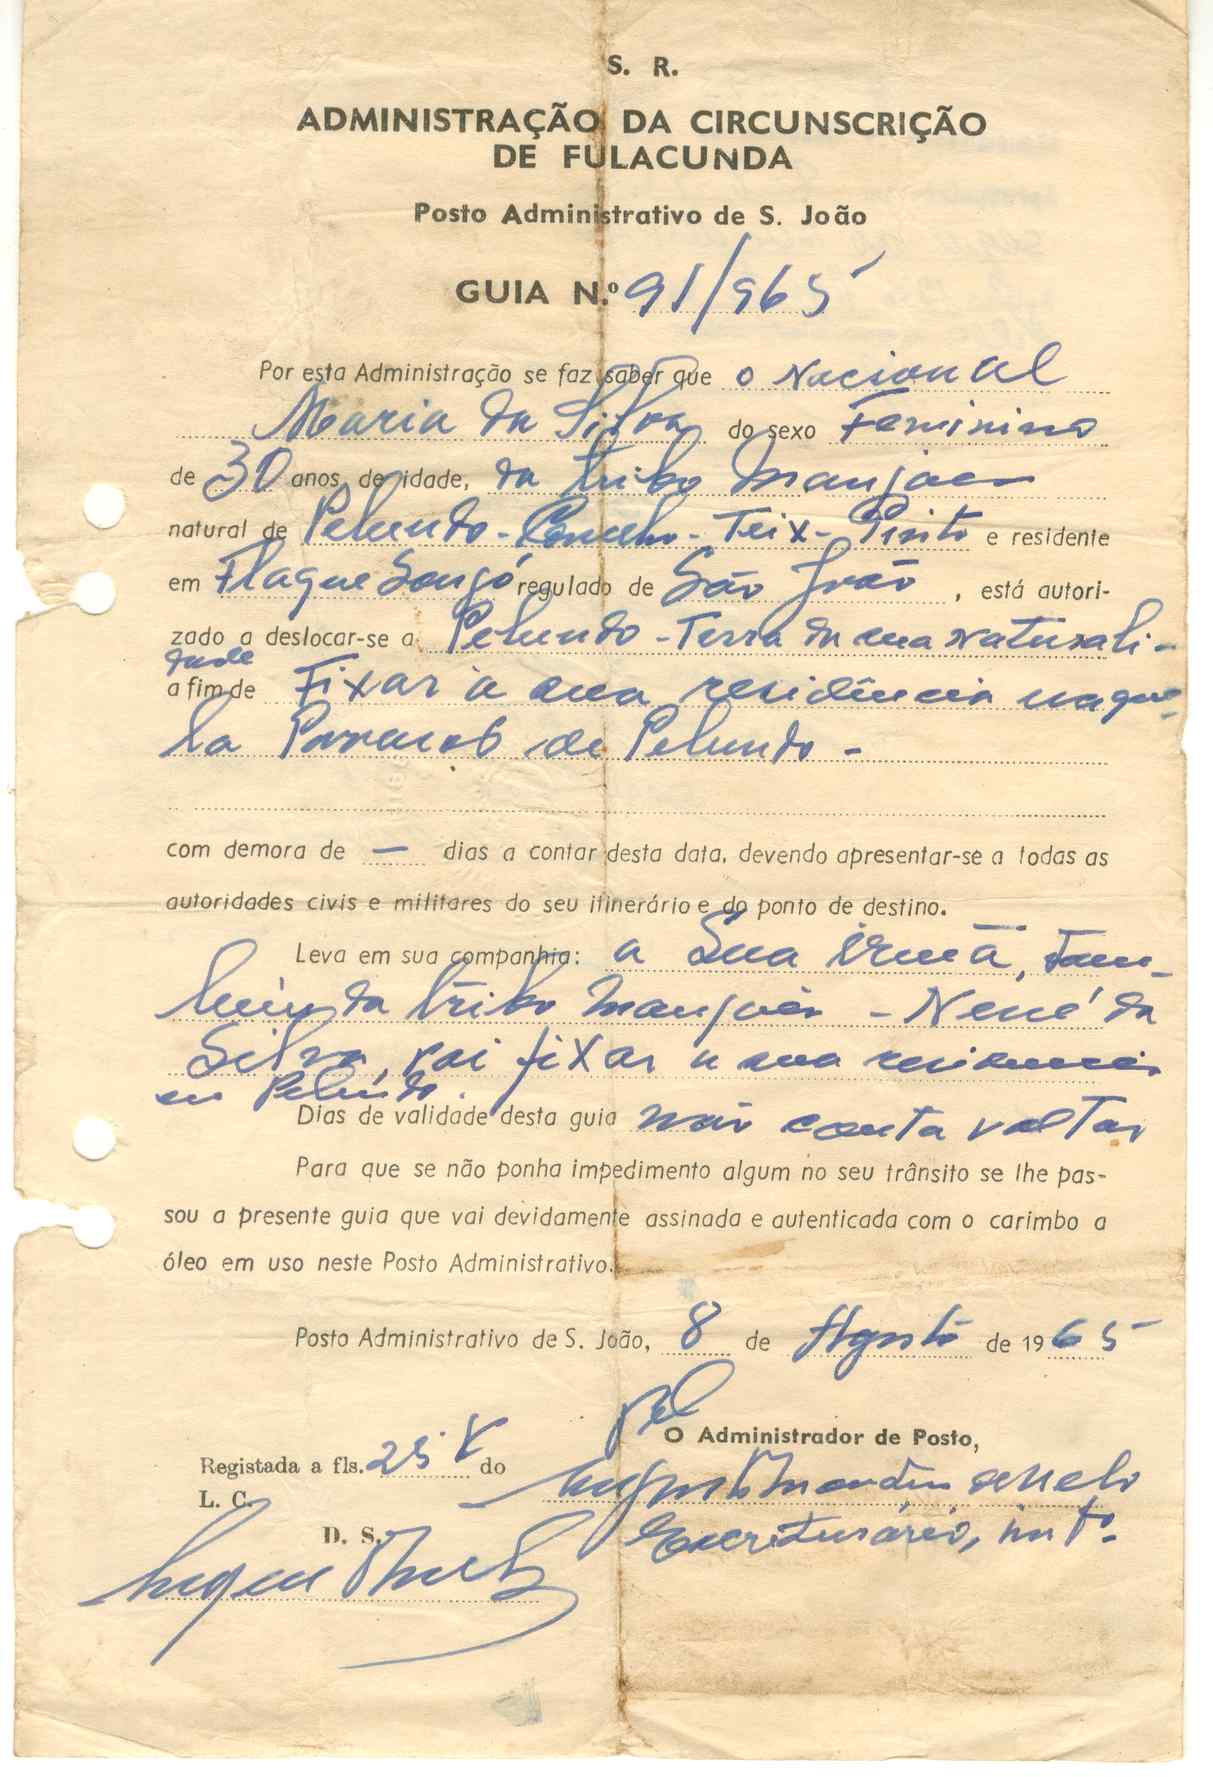 S. R.
ADMINISTRAÇÃO DA CIRCUNSCRIÇÃO
DE FULACUNDA
Posto Administrativo de S. João
GUIA N.º 91/965
Por esta Administração se faz saber que o Nacional
Maria da Silva do sexo Feminino
de 30 anos, de idade, da tribo Manjaca
natural de Pelundo - Concelho - Teix - Pinto e residente
em Flaque regulado de São João, está autori-
zado a deslocar-se a: Pelundo - Terra da sua naturali-
dade
a fim de Fixar a sua residência naque-
la de Pelundo -
com demora de — dias a contar desta data, devendo apresentar-se a todas as
autoridades civis e militares do seu itinerário e do ponto de destino.
Leva em sua companhia: a Sua irmã, Tam-
bém da tribo - Nené da
Silva, vai fixar a sua residencia
em Pelundo.
Dias de validade desta guia não conta voltar
Para que se não ponha impedimento algum no seu trânsito se lhe pas-
sou a presente guia que vai devidamente assinada e autenticada com o carimbo a
óleo em uso neste Posto Administrativo.
Posto Administrativo de S. João, 8 de Agosto de 1965
Pel
O Administrador de Posto,
Registada a fls. 25 V do
L. C.
Escriturário, intº.
D. S.